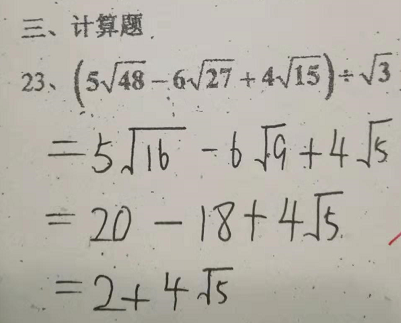 三、计算题
23、(5√48 − 6√27 + 4√15) ÷ √3
= 5√16 − 6√9 + 4√5
= 20 − 18 + 4√5
= 2 + 4√5